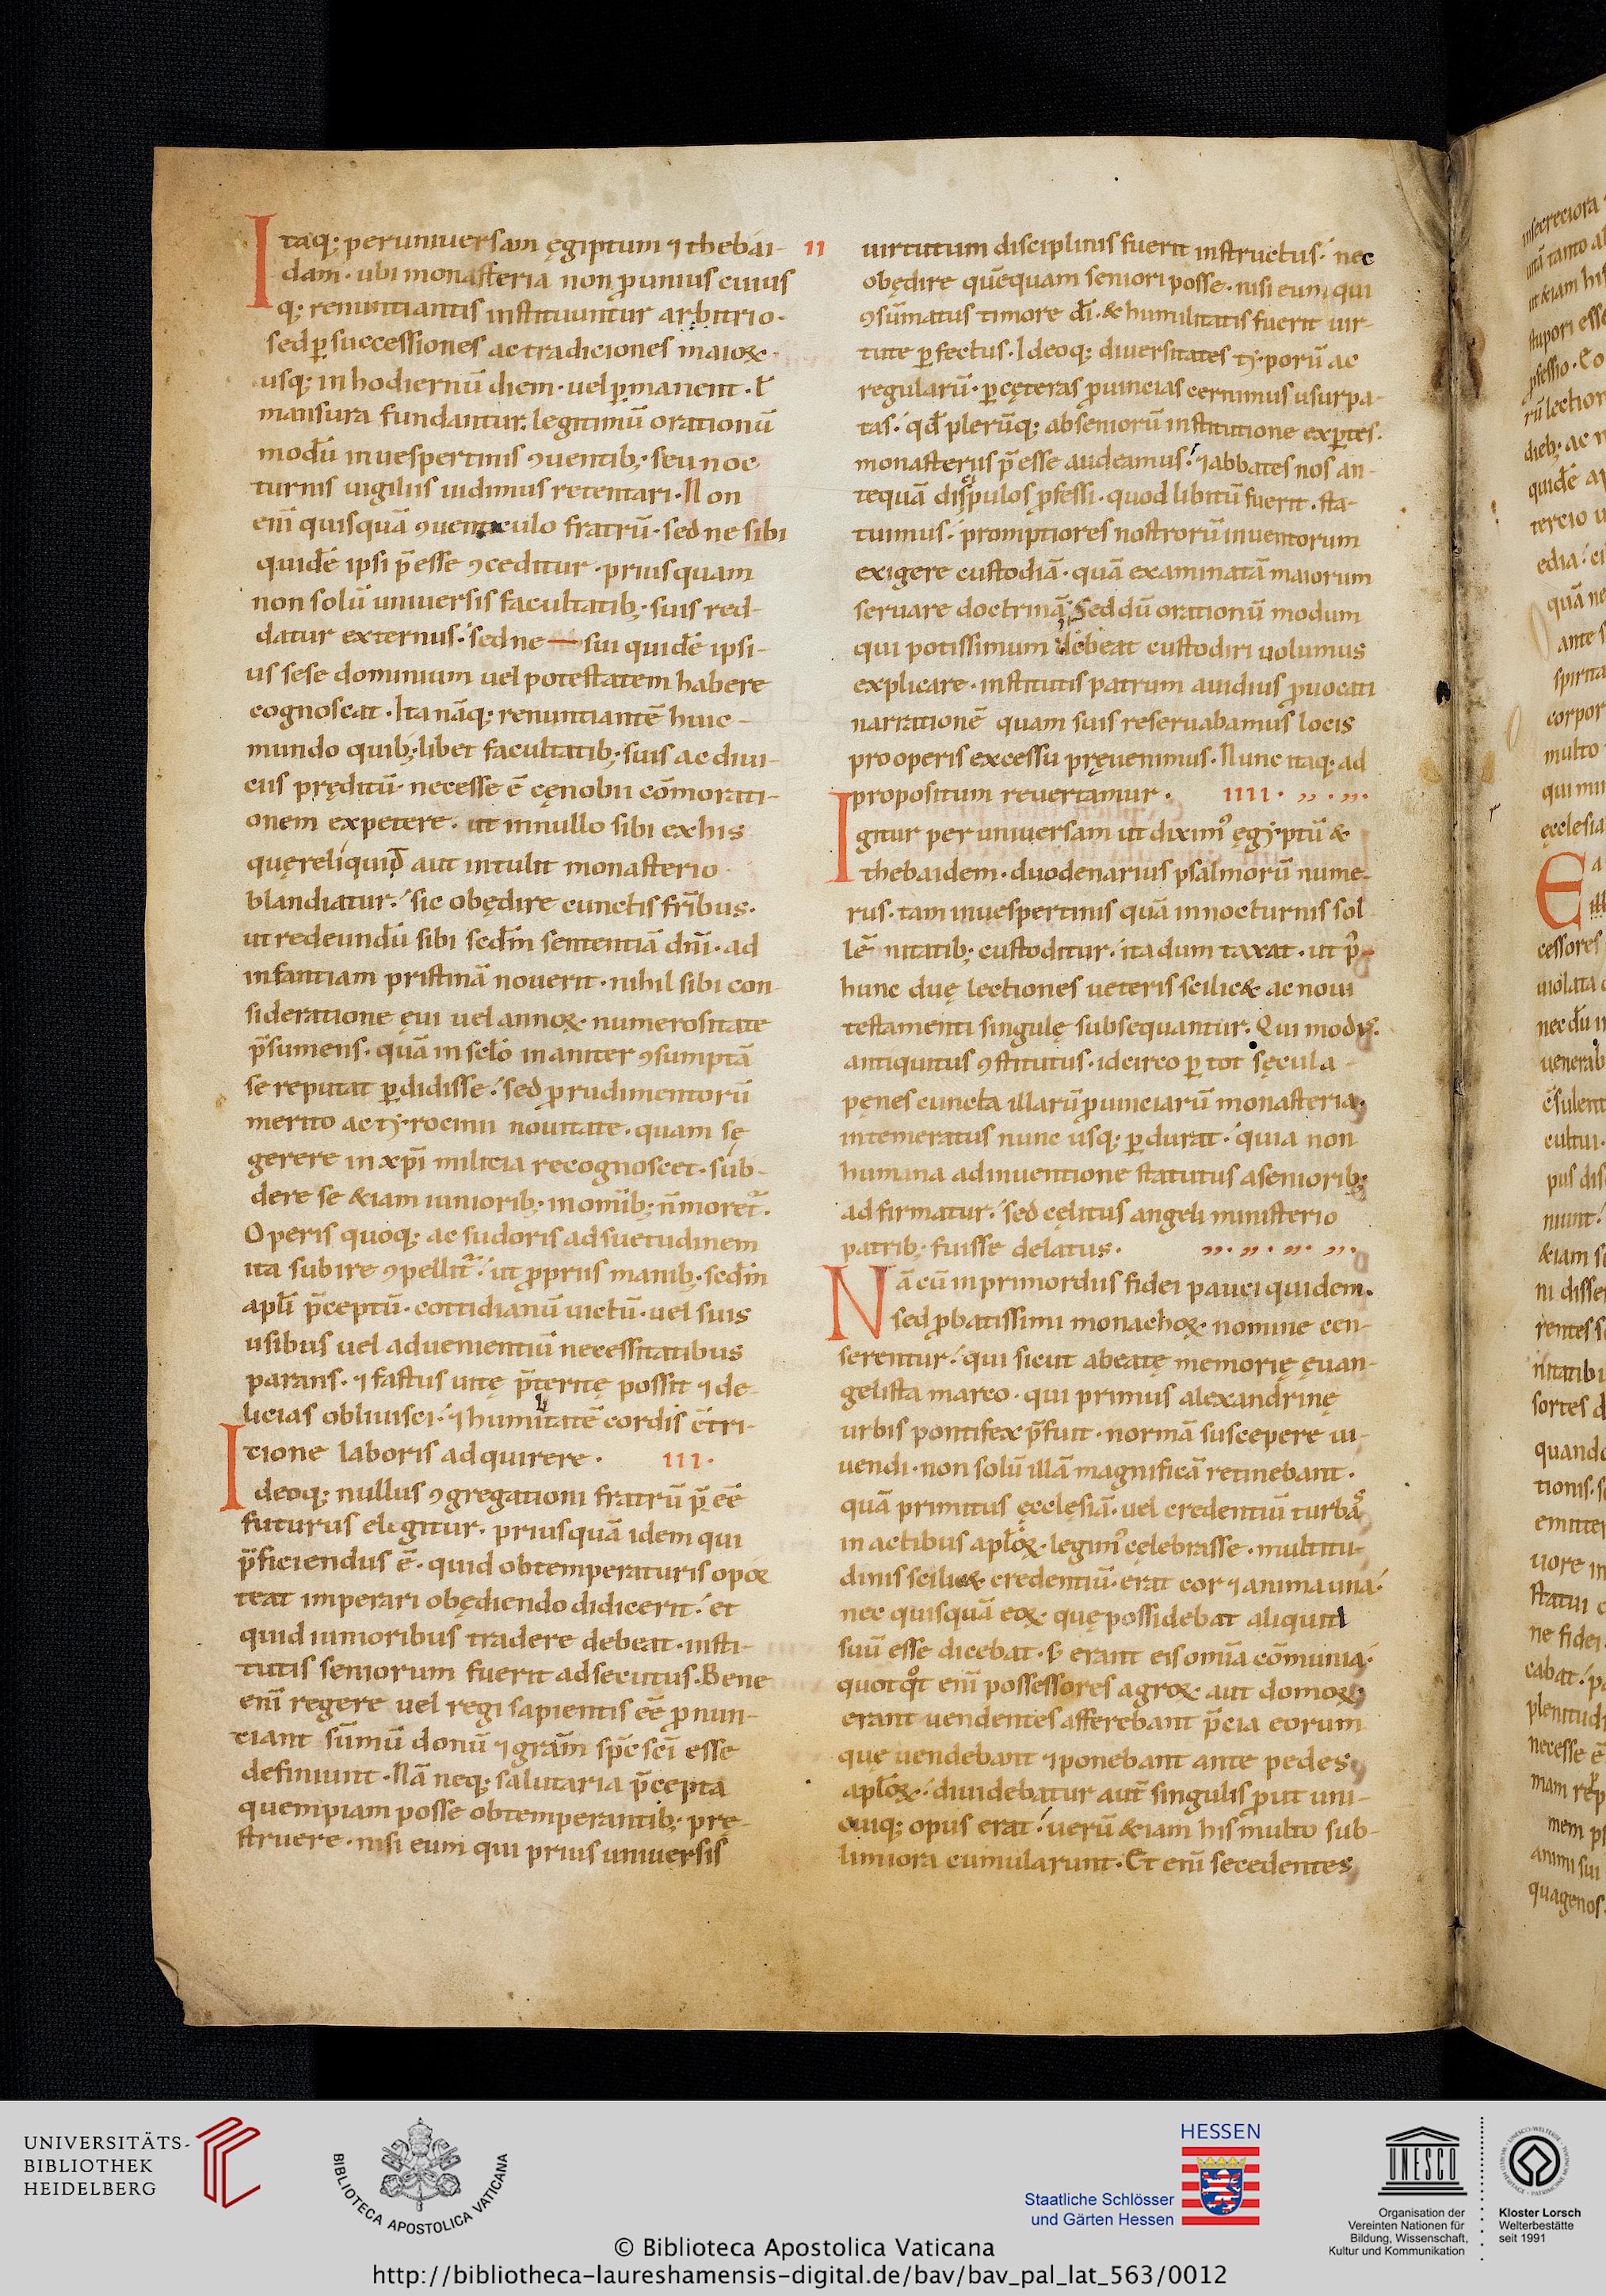 Itaq; peruniuersam ęgiptum ⁊ thebai-
dam · ubi monasteria non p̱unius cuius
q; renuntiantis instituuntur arbitrio ·
sed ꝑ successiones ac tradiciones maioꝝ ·
usq; in hodiernū diem · uel ꝑmanent · ł
mansura fundantur. legitimū orationū
modū inuespertinis ꝯuentib; · seu noc
turnis uigiliis uidimus retentari · Non
enī quisquā ꝯuenticulo fratrū · sed ne sibi
quidē ipsi p̄esse ꝯceditur · priusquam
non solū uniuersis facultatib; · suis red-
datur externus · sed ne — sui quidē ipsi-
us sese dominium uel potestatem habere
cognoscat · Ita nāq; renuntiantē huic -
mundo quib;libet facultatib; · suis ac diui-
ciis pręditū · necesse ē cęnobii cōmorati-
onem expetere · ut innullo sibi ex his
quęreliquid aut intulit monasterio
blandiatur · sic obędire cunctis fr̄ibus ·
ut redeundū sibi sed̄m sententiā dn̄i · ad
infantiam pristinā nouerit · nihil sibi con-
sideratione ęui uel annoꝝ · numerositate
p̄sumens · quā in sc̄lo inaniter ꝯsumptā
se reputat ꝑdidisse · sed ꝓ rudimentorū
merito ac ty·rocinii nouitate · quam sę
gerere in xp̄i milicia recognoscet · sub-
dere se &iam iuniorib; · in om̄ib; · n̄ moret᷑.
Operis quoq; ac sudoris adsuetudinem
ita subire ꝯpellit᷑ · ut ꝓpriis manib; · sed̄m
apłi p̄ceptū · cottidianū uictū · uel suis
usibus uel aduenientiū necessitatibus
parans · ⁊ fastus uitę p̄teritę possit ⁊ de-
licias obliuisci · ⁊ humilitatē cordis c̄tri-
tione laboris adquirere · III ·
Ideoq; nullus ꝯgregationi fratrū p̄ eē
futurus elegitur · priusquā idem qui
p̄ficiendus ē · quid obtemperaturis opoꝝ
teat imperari obędiendo didicerit · et
quid iunioribus tradere debeat · insti-
tutis seniorum fuerit adsecutus · Bene
enī regere uel regi sapientis eē ꝓnun-
ciant summū donū ⁊ grām sp̄c sc̄i esse
definiunt · Nā neq; salutaria p̄cepta
quempiam posse obtemperantib; · prę-
struere · nisi eum qui prius uniuersis
II uirtutum disciplinis fuerit instructus · nec
obędire quēquam seniori posse · nisi eum qui
ꝯsūmatus timore d̄i · & humilitatis fuerit uir-
tute ꝑfectus · Ideoq; diuersitates ty·porū ac
regularū · ꝑ cęteras ꝓuincias cernimus usurpa-
tas · qd̄ plerūq; abseniorū institutione exꝑtes.
monasteriis p̄ esse audeamus · ⁊ abbates nos an-
tequā discipulos ꝓfessi · quod libitū fuerit · sta-
tuimus · promptiores nostrorū inuentorum
exigere custodiā · quā examinatā maiorum
seruare doctrinā; Sed dū orationū modum
qui potissimum debeat custodiri uolumus
explicare · institutis patrum auidius ꝓuocati
narrationē quam suis reseruabamus locis
pro operis excessu pręuenimus · Nunc itaq; ad
propositum reuertamur · IIII ·
Igitur per uniuersam ut diximꝰ ęgy·ptū &
thebaidem · duodenarius psalmorū nume-
rus · tam inuespertinis quā innocturnis sol
lēnitatib; custoditur · ita dum taxat · ut p̄-
hunc duę lectiones ueteris scilic& ac noui
testamenti singulę subsequantur · Qui modꝰ.
antiquitus ꝯstitutus · idcirco ꝑ tot sęcula -
penes cuncta illarū ꝓuinciarū monasteria ·
intemeratus nunc usq; ꝑdurat · quia non
humana adinuentione statutus aseniorib;
adfirmatur · sed cęlitus angeli ministerio
patrib; · fuisse delatus ·
Nā cū inprimordiis fidei pauci quidem ·
sed ꝓbatissimi monachoꝝ · nomine cen-
serentur · qui sicut abeatę memorię ęuan-
gelista marco · qui primus alexandrinę
urbis pontifex p̄fuit · normā suscepere ui-
uendi · non solū illā magnificā retinebant ·
quā primitus ęcclęsiā · uel credentiū turbā
in actibus apłoꝝ · legimꝰ cęlebrasse · multitu-
dinis scilic& credentiū · erat cor ⁊ anima una ·
nec quisquā eoꝝ · quę possidebat aliquid
suū esse dicebat · s; erant eis omīa cōmunia ·
quotqt enī possessores agroꝝ · aut domoꝝ ·
erant uendentes afferebant p̄cia eorum
quę uendebant ⁊ ponebant ante pedes
apłoꝝ · diuidebatur aut̄ singulis ꝓut uni-
cuiq; opus erat · uerū &iam his multo sub-
limiora cumularunt · Et enī secedentes
UNIVERSITÄTS-
BIBLIOTHEK
HEIDELBERG
BIBLIOTECA APOSTOLICA VATICANA
HESSEN
Staatliche Schlösser
und Gärten Hessen
UNESCO
Organisation der
Vereinten Nationen für
Bildung, Wissenschaft,
Kultur und Kommunikation
Kloster Lorsch
Welterbestätte
seit 1991
© Biblioteca Apostolica Vaticana
http://bibliotheca-laureshamensis-digital.de/bav/bav_pal_lat_563/0012